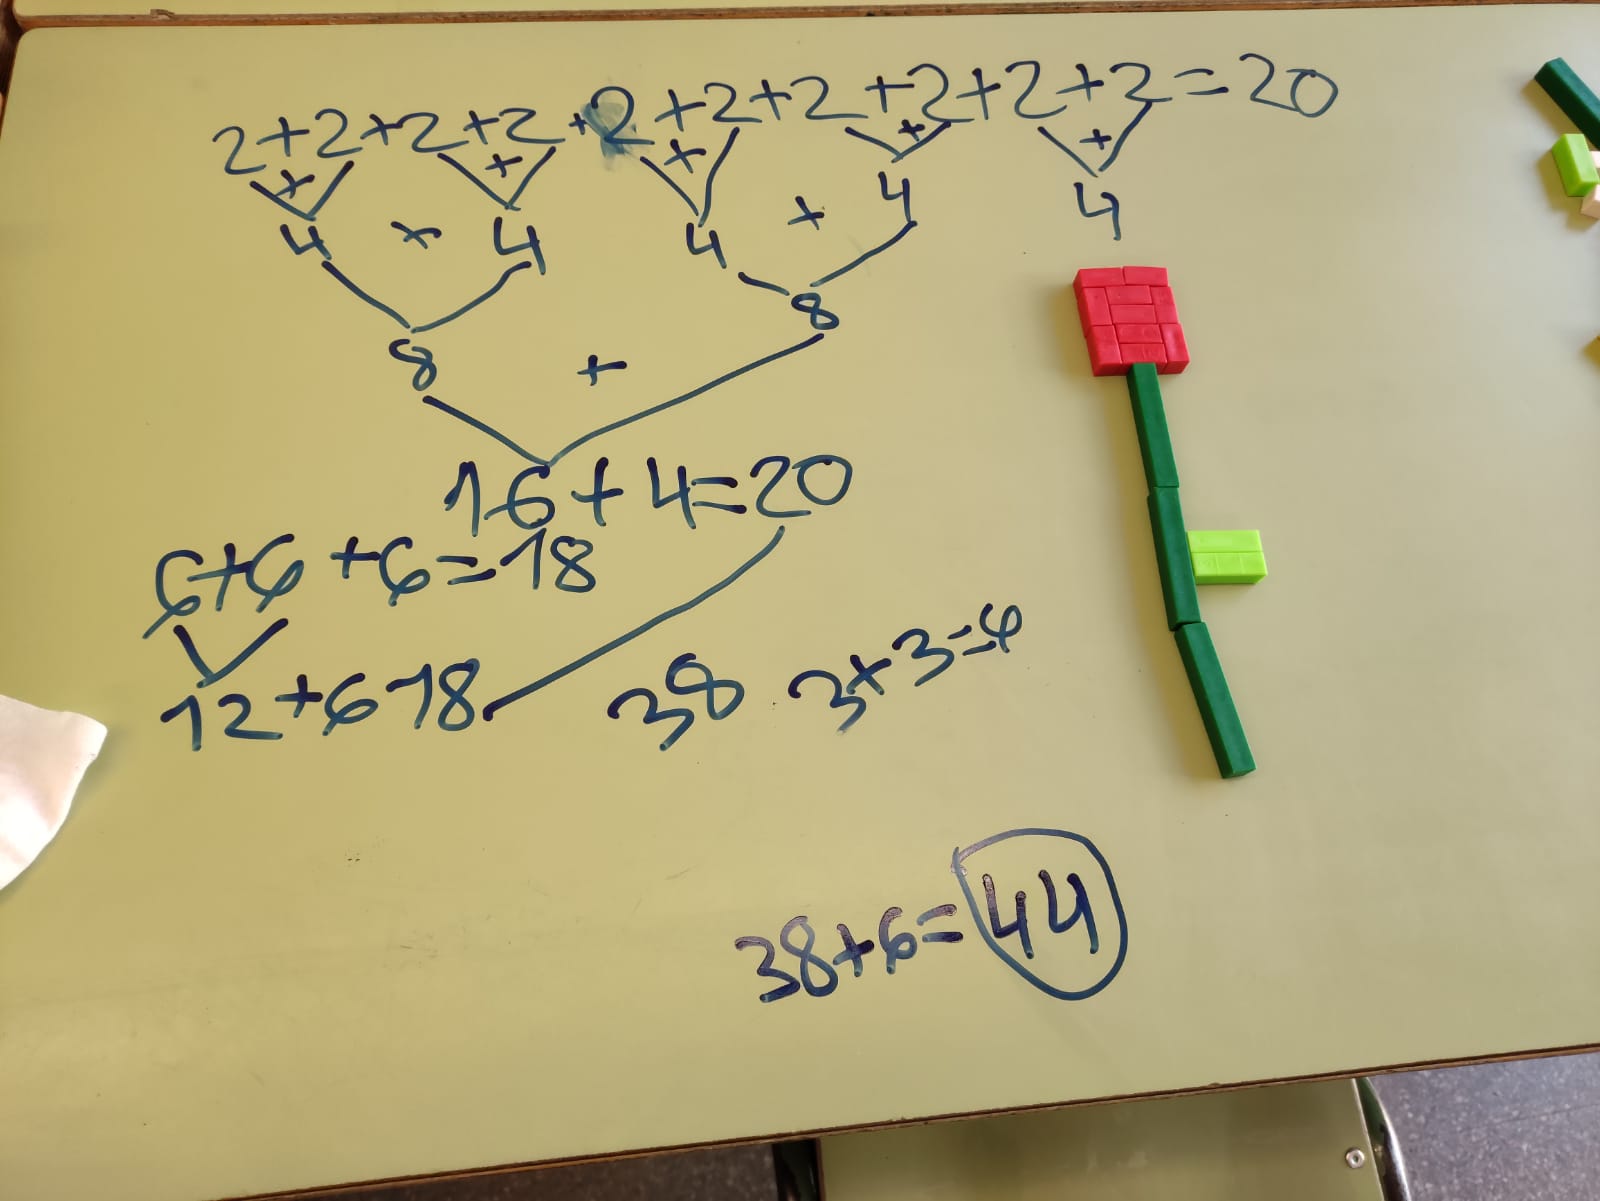 2+2+2+2+2+2+2+2+2+2=20
+ + + + +
4 + 4 4 + 4 4
8 + 8
16+4=20
6+6+6=18
12+6 18 38 3+3=6
38+6=44